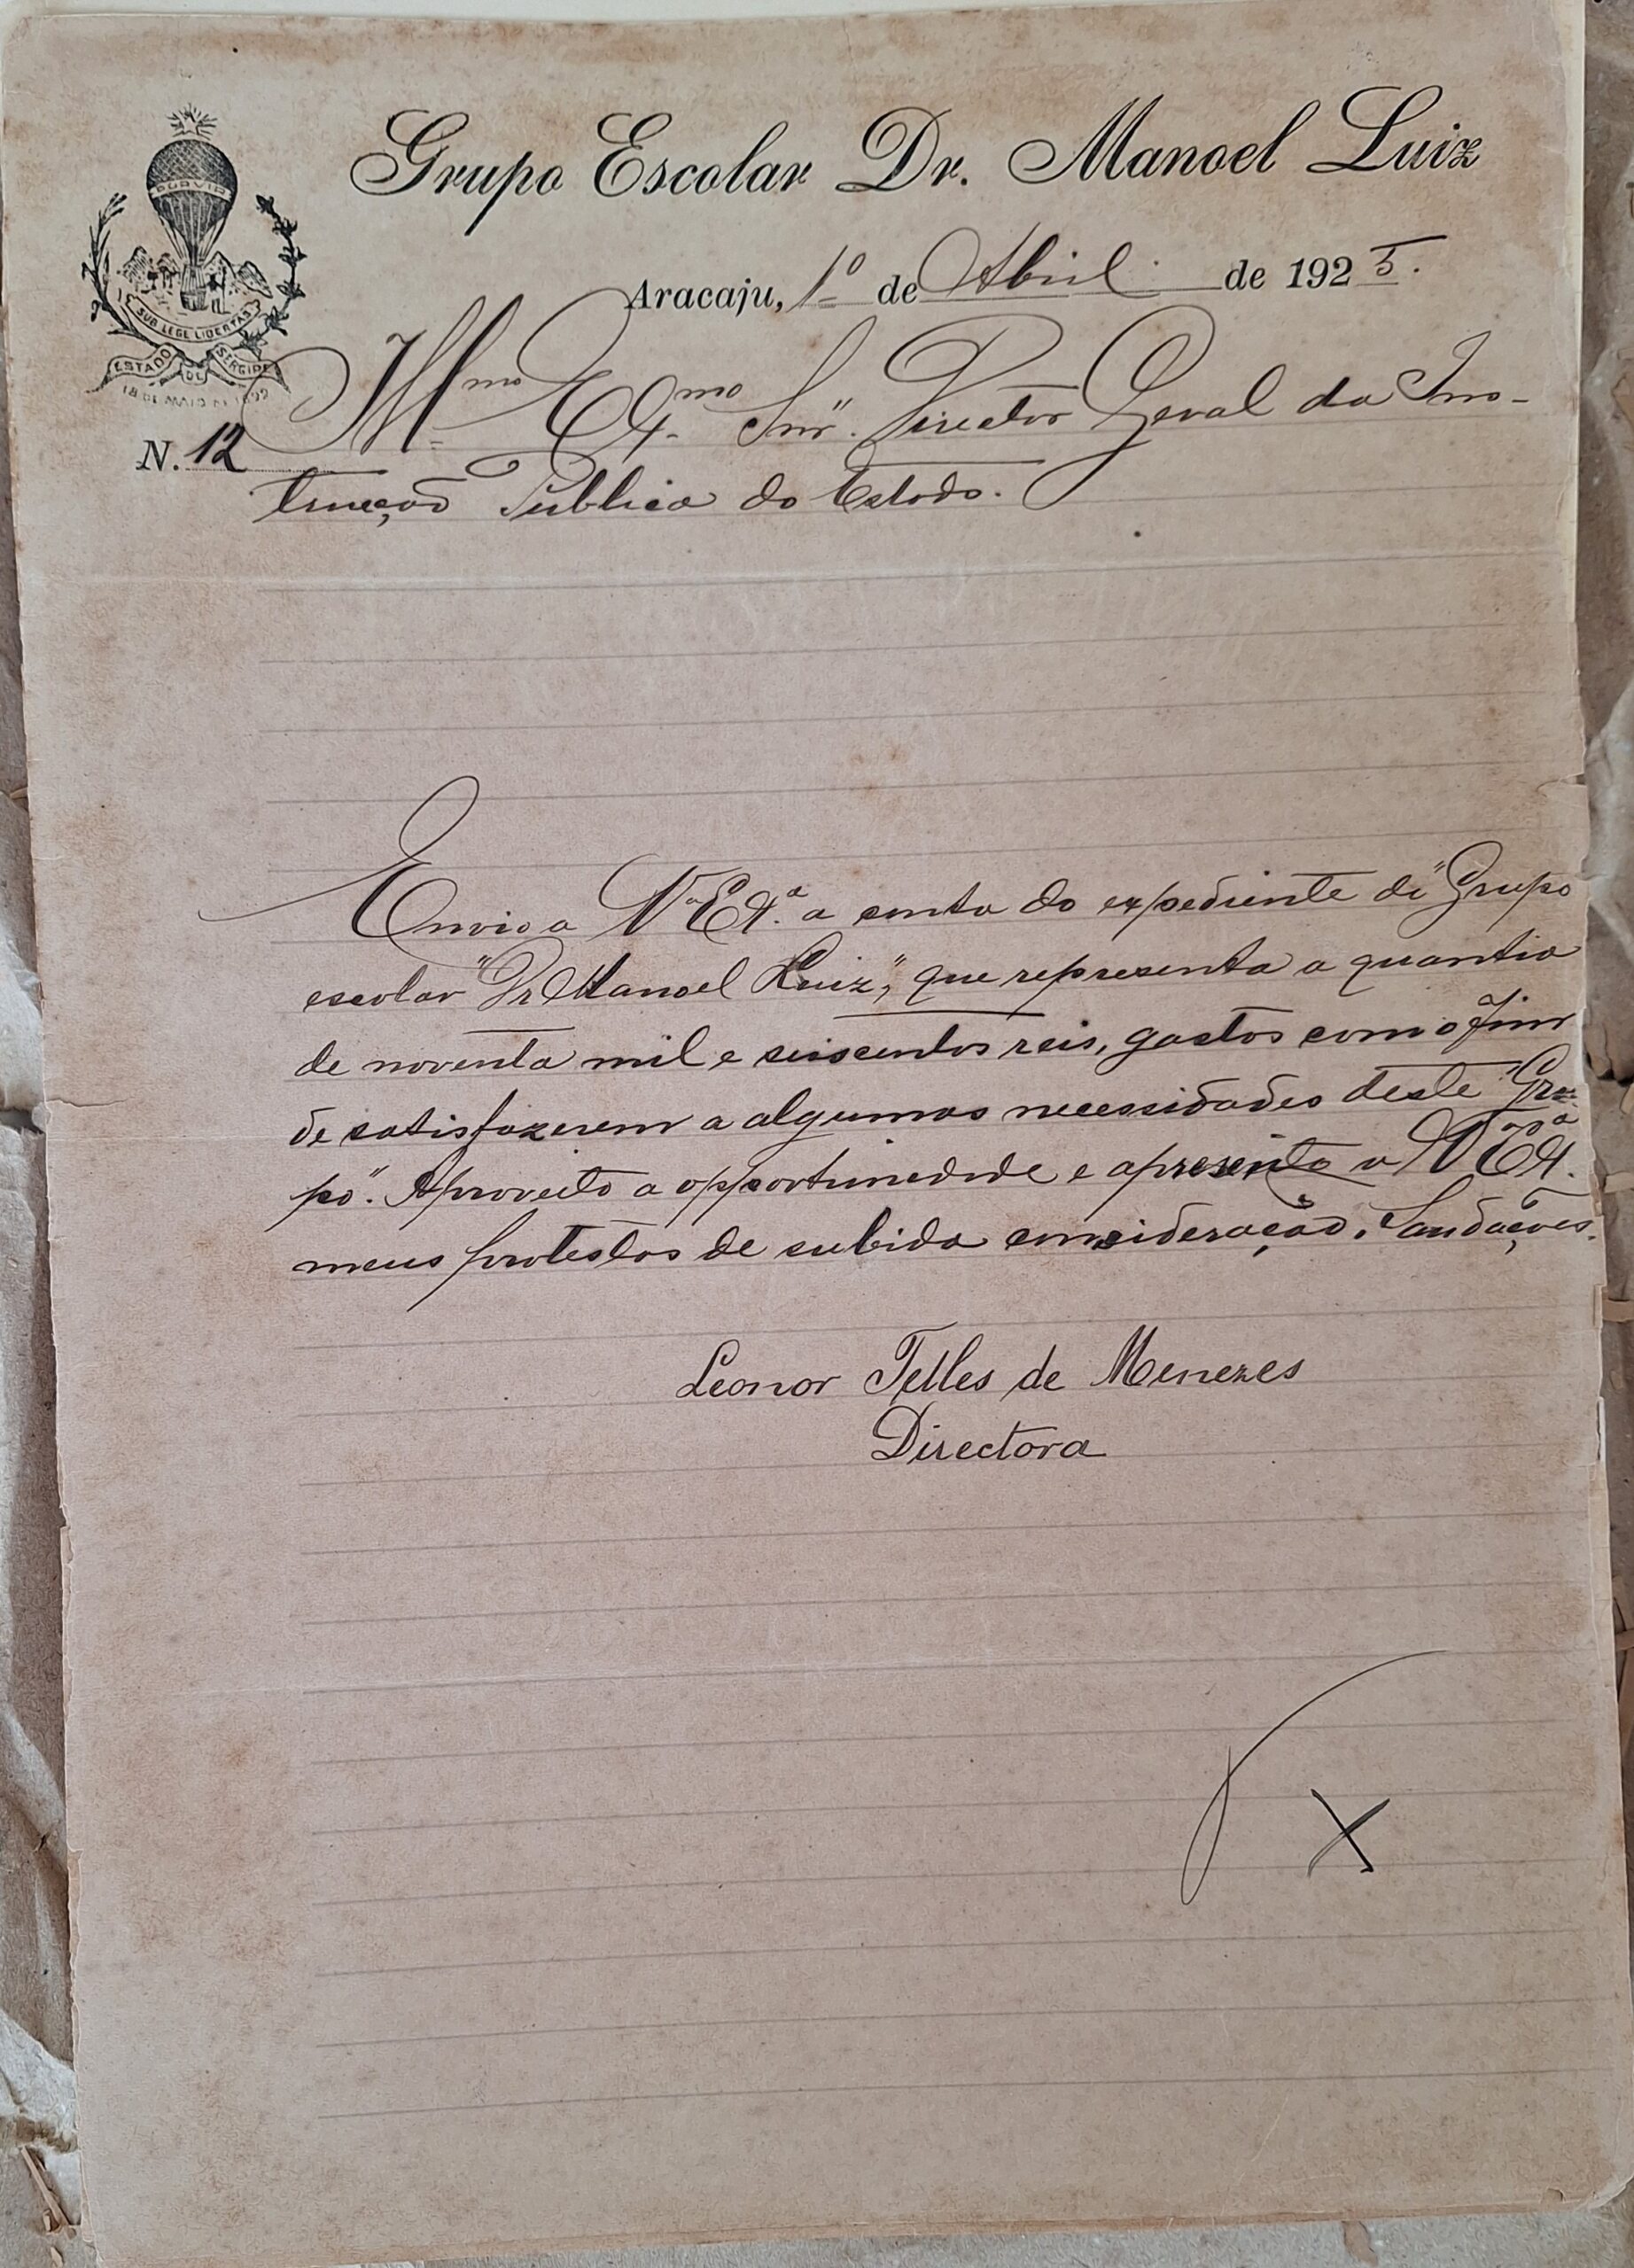 Grupo Escolar Dr. Manoel Luiz
PORVIR
SUB LEGE LIBERTAS
ESTADO DE SERGIPE
18 DE MAIO DE 1892
Aracaju, 1º de Abril de 1925.
N. 12
Illmo Exmo Snr. Director Geral da Ins-
trucção Publica do Estado.
Envio a Vª Exª. a conta do expediente do "Grupo
escolar "Dr Manoel Luiz", que representa a quantia
de noventa mil e seiscentos reis, gastos com o fim
de satisfazerem a algumas necessidades deste "Gru-
po". Aproveito a opportunidade e apresento a Vª Exª.
meus protestos de subida consideração. Saudações.
Leonor Telles de Menezes
Directora
X